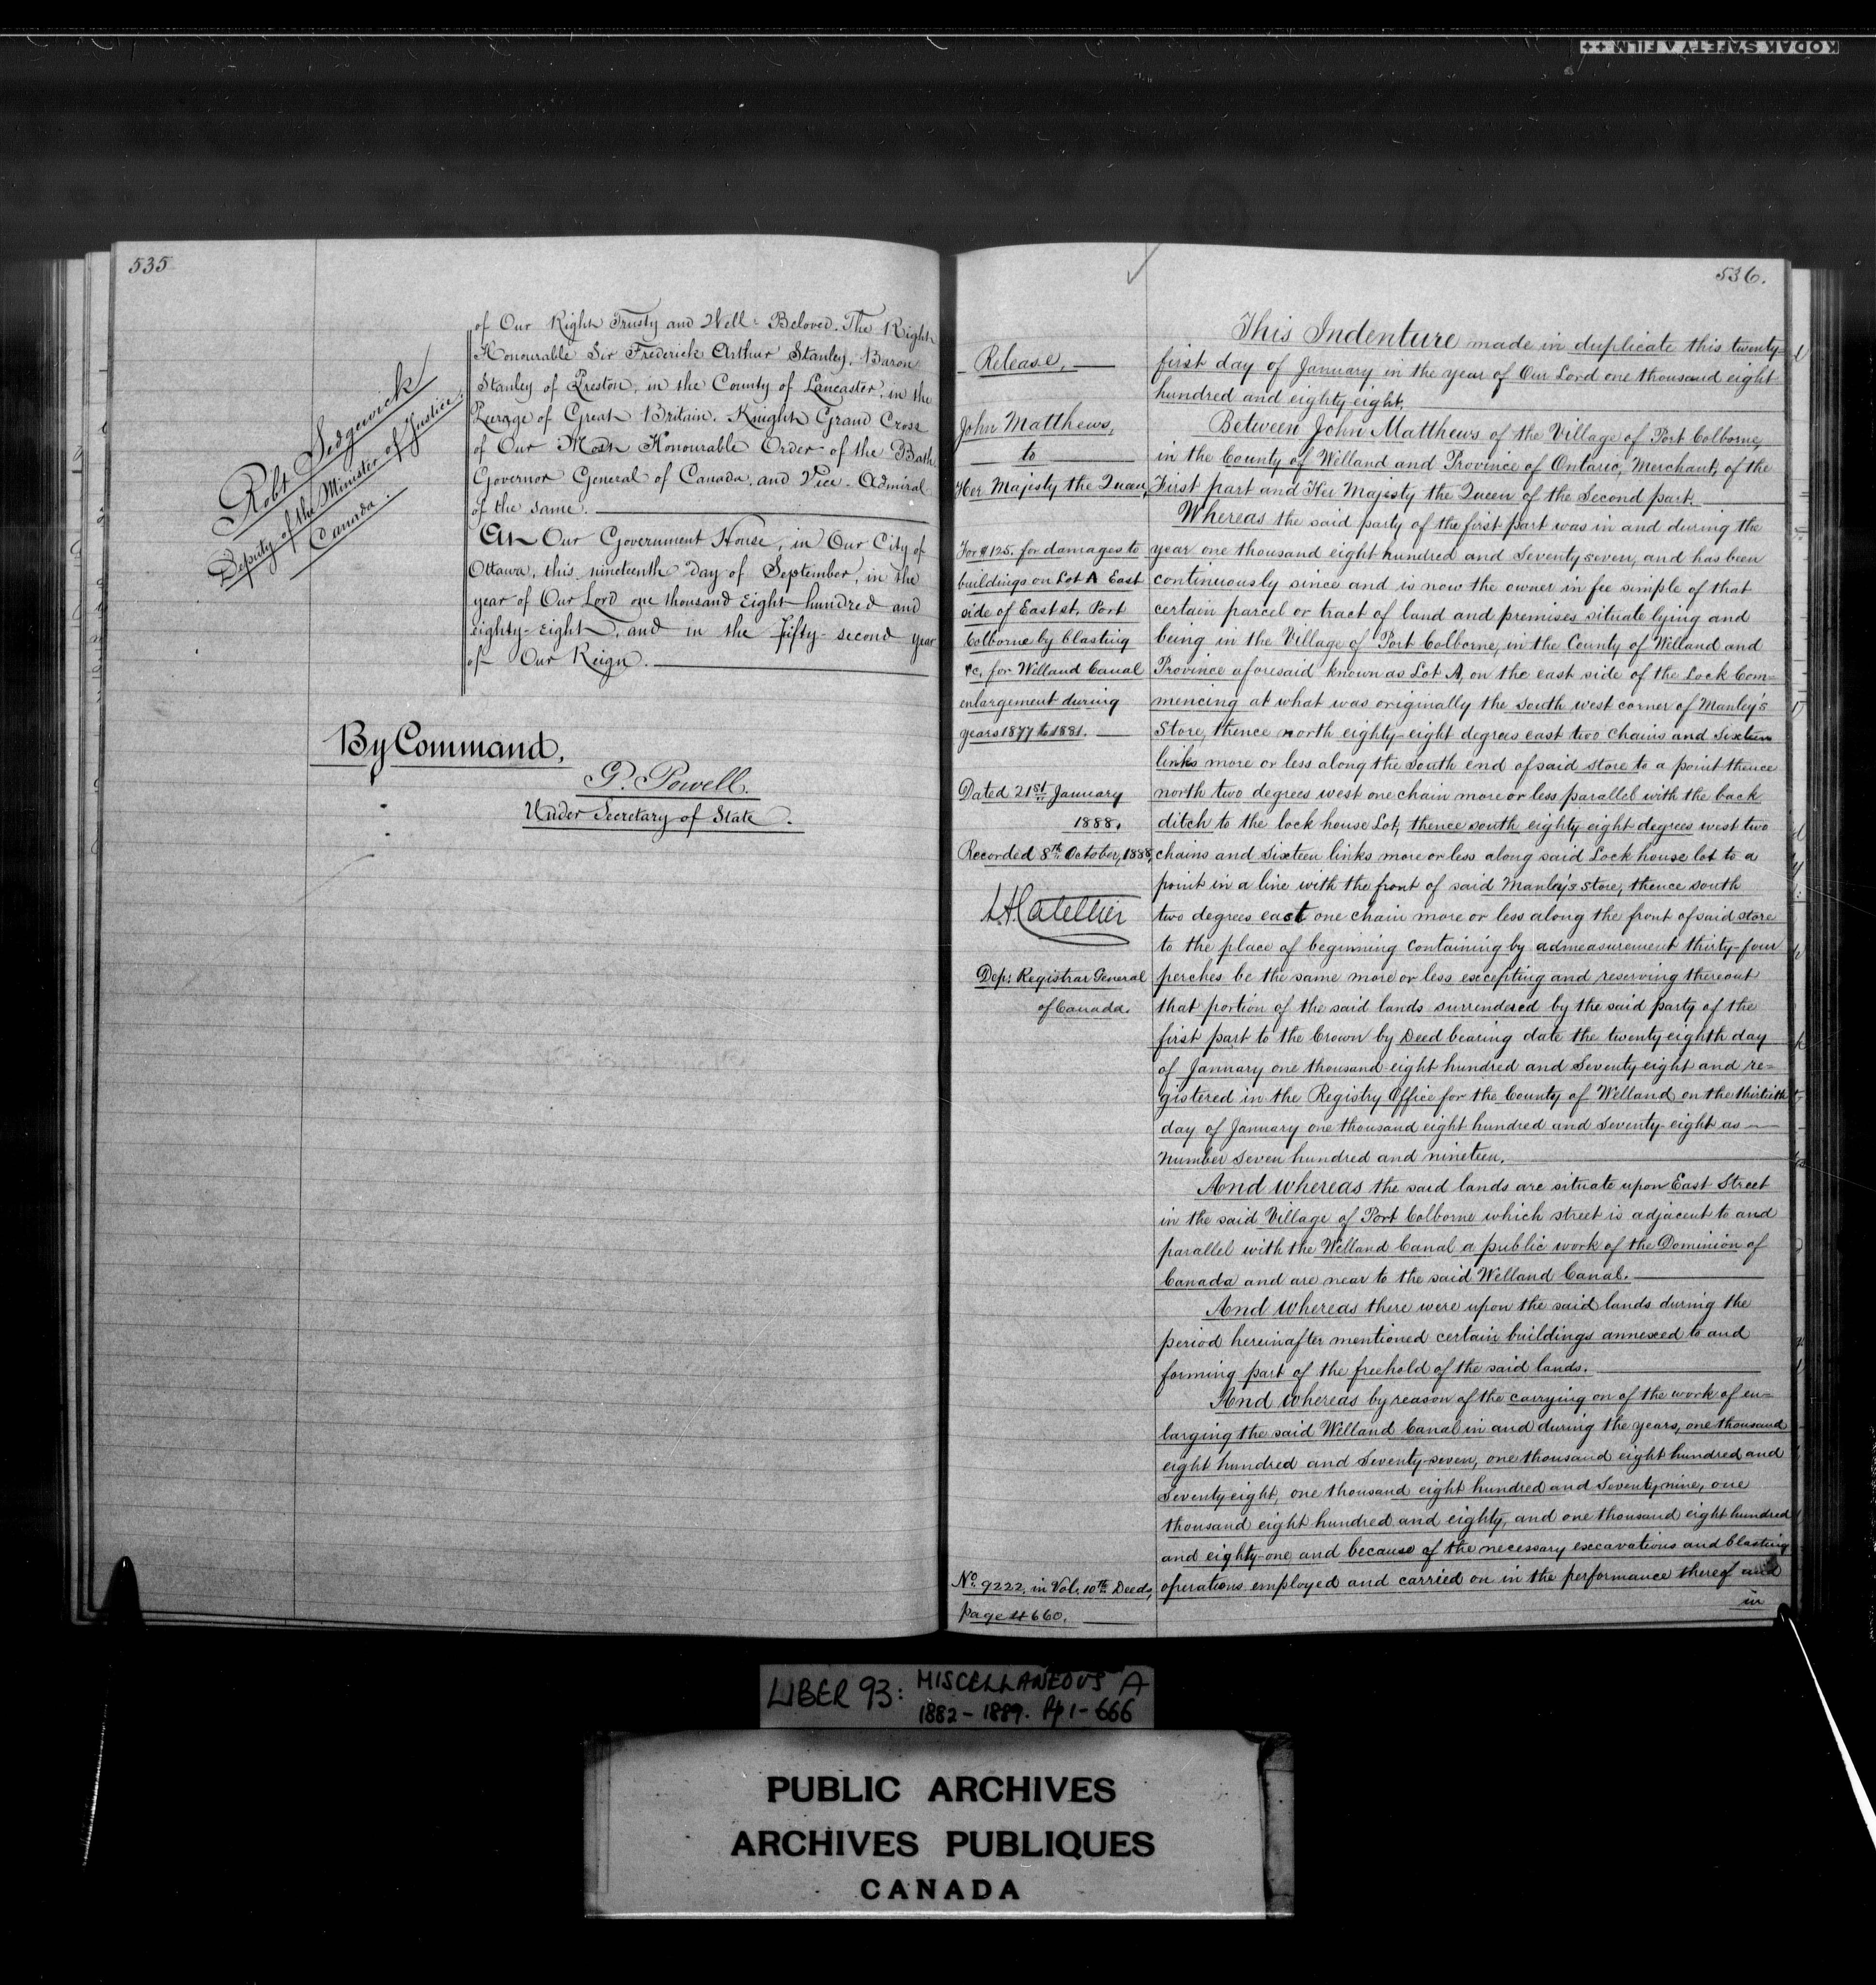 KODAK SAFETY A FILM ++
535
of Our Right Trusty and Well-Beloved. The Right
Honourable Sir Frederick Arthur Stanley, Baron
Stanley of Preston, in the County of Lancaster, in the
Peerage of Great Britain. Knight Grand Cross
of Our Most Honourable Order of the Bath
Governor General of Canada, and Vice-Admiral
of the same.
At Our Government House, in Our City of
Ottawa, this nineteenth Day of September, in the
year of Our Lord one thousand Eight hundred and
eighty-eight, and in the Fifty-second year
of Our Reign.
Robt Sedgewick
Deputy of the Minister of Justice,
Canada.
By Command,
G. Powell.
Under Secretary of State.
536.
Release,
John Matthews,
to
Her Majesty the Queen,
For $125. for damages to
buildings on Lot A East
side of East st. Port
Colborne by blasting
&c. for Welland Canal
enlargement during
years 1877 to 1881.
Dated 21st January
1888.
Recorded 8th October, 1888,
LACatellier
Dep: Registrar General
of Canada.
No. 9222. in Vol. 10th Deeds,
page 4660.
This Indenture made in duplicate this twenty-
first day of January in the year of Our Lord one thousand eight
hundred and eighty eight.
Between John Matthews of the Village of Port Colborne,
in the County of Welland and Province of Ontario, Merchant, of the
First part and Her Majesty the Queen of the Second part.
Whereas the said party of the first part was in and during the
year one thousand eight hundred and Seventy seven, and has been
continuously since and is now the owner in fee simple of that
certain parcel or tract of land and premises situate lying and
being in the Village of Port Colborne, in the County of Welland and
Province aforesaid known as Lot A, on the east side of the Lock Com=
mencing at what was originally the South west corner of Manley's
Store, thence north eighty-eight degrees east two chains and Sixteen
links more or less along the South end of said store to a point thence
north two degrees west one chain more or less parallel with the back
ditch to the lock house Lot, thence south eighty eight degrees west two
chains and Sixteen links more or less along said Lock house lot to a
point in a line with the front of said Manley's store, thence south
two degrees east one chain more or less along the front of said store
to the place of beginning containing by admeasurement thirty-four
perches be the same more or less excepting and reserving thereout
that portion of the said lands surrendered by the said party of the
first part to the Crown by Deed bearing date the twenty eighth day
of January one thousand eight hundred and Seventy eight and re=
gistered in the Registry Office for the County of Welland on the thirtieth
day of January one thousand eight hundred and Seventy-eight as
Number Seven hundred and nineteen.
And whereas the said lands are situate upon East Street
in the said Village of Port Colborne which street is adjacent to and
parallel with the Welland Canal a public work of the Dominion of
Canada and are near to the said Welland Canal.
And whereas there were upon the said lands during the
period hereinafter mentioned certain buildings annexed to and
forming part of the freehold of the said lands.
And whereas by reason of the carrying on of the work of en=
larging the said Welland Canal in and during the years, one thousand
eight hundred and Seventy-seven, one thousand eight hundred and
Seventy eight, one thousand eight hundred and Seventy nine, one
thousand eight hundred and eighty, and one thousand eight hundred
and eighty-one and because of the necessary excavations and blasting
operations employed and carried on in the performance thereof and
in
LIBER 93: MISCELLANEOUS A
1882-1889. Pp 1-666
PUBLIC ARCHIVES
ARCHIVES PUBLIQUES
CANADA